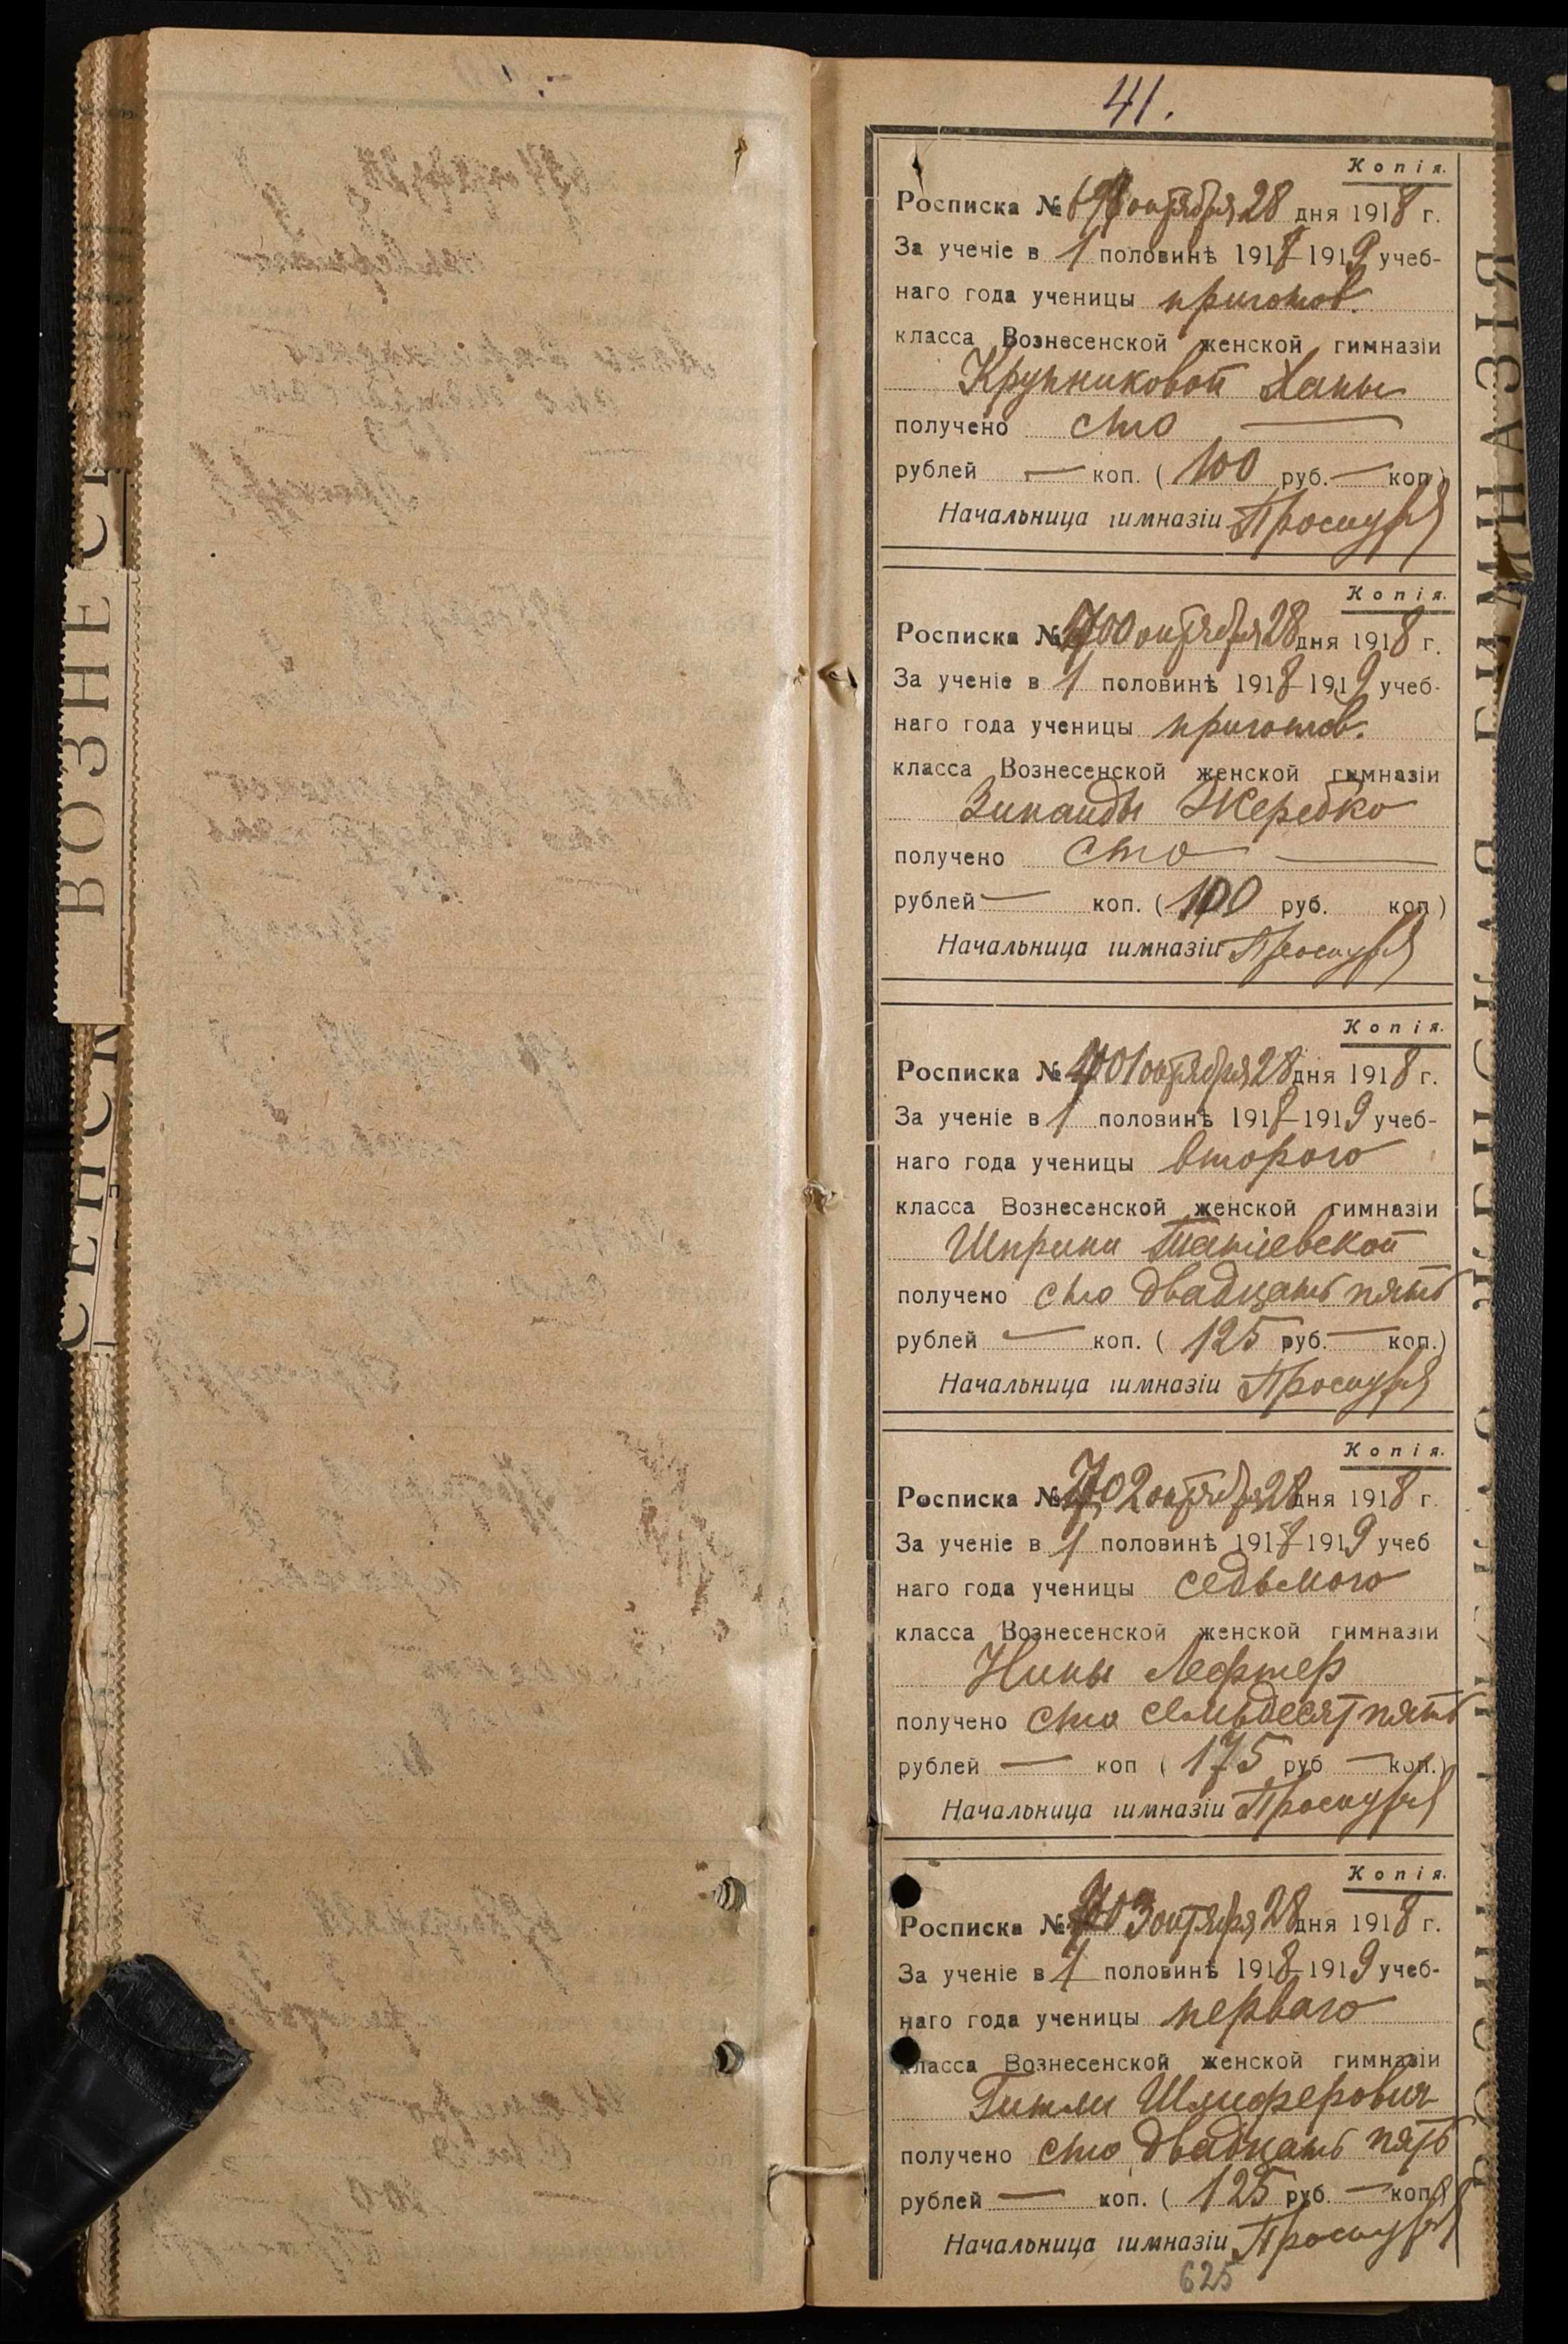 41.
Копія.
Росписка № октября 28 дня 1918 г.
За ученіе в 1 половинѣ 1918-1919 учеб-
наго года ученицы приготов.
класса Вознесенской женской гимназіи
Крупниковой Ханы
получено сто —
рублей — коп. (100 руб. — коп)
Начальница гимназіи
Копія.
Росписка № 700 октября 28 дня 1918 г.
За ученіе в 1 половинѣ 1918-1919 учеб-
наго года ученицы приготов.
класса Вознесенской женской гимназіи
Зинаиды Жеребко
получено сто —
рублей — коп. (100 руб. коп)
Начальница гимназіи
Копія.
Росписка № 701 октября 28 дня 1918 г.
За ученіе в 1 половинѣ 1918-1919 учеб-
наго года ученицы второго
класса Вознесенской женской гимназіи
получено сто двадцать пять
рублей — коп. (125 руб. — коп.)
Начальница гимназіи
Копія.
Росписка № 702 октября 28 дня 1918 г.
За ученіе в 1 половинѣ 1918-1919 учеб
наго года ученицы седьмого
класса Вознесенской женской гимназіи
Нины Лефтер
получено сто семьдесят пять
рублей — коп (175 руб — коп.)
Начальница гимназіи
Копія.
Росписка № 703 октября 28 дня 1918 г.
За ученіе в 1 половинѣ 1918-1919 учеб-
наго года ученицы перваго
класса Вознесенской женской гимназіи
Гитли Шлиферович
получено сто двадцать пять
рублей — коп. (125 руб. — коп)
Начальница гимназіи
625
ВОЗНЕ